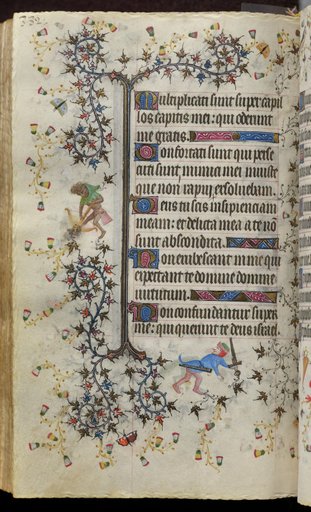 332
Multiplicati sunt super capil
los capitis mei: qui oderunt
me gratis.
Confortati sunt qui perse
cuti sunt inimici mei iniuste
que non rapui exsoluebam.
Deus tu scis insipienciam
meam: et delicta mea a te no
sunt abscondita.
Non erubescant in me qui
expectant te domine domine
uirtutum.
Non confundantur super
me: qui querunt te deus israel.